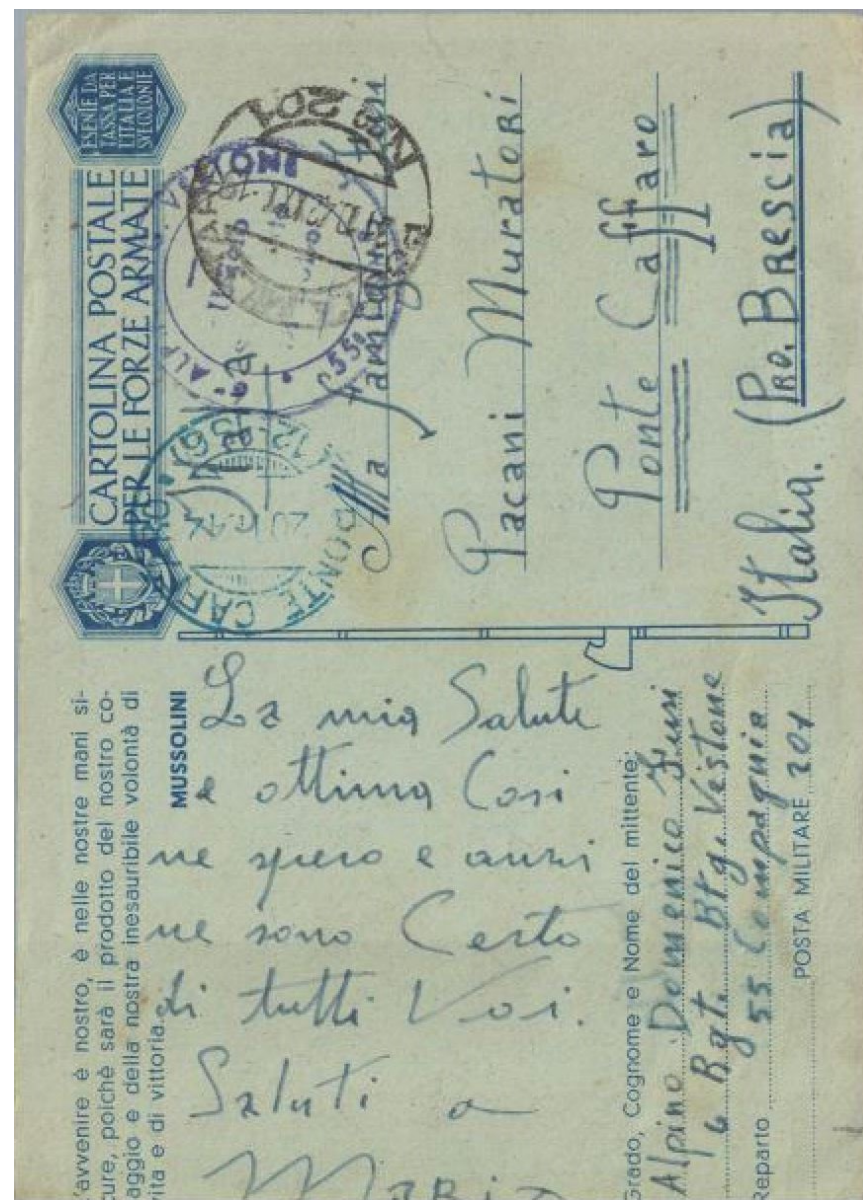 CARTOLINA POSTALE
PER LE FORZE ARMATE
ESENTE DA
TASSA PER
L'ITALIA E
SPEDIZIONE
No 201
PONTE CAF
(12-36)
Alla famiglia
Pacani Muratori
Ponte Caffaro
Italia. (Pro. Brescia)
L'avvenire è nostro, è nelle nostre mani si-
cure, poichè sarà il prodotto del nostro co-
raggio e della nostra inesauribile volontà di
vita e di vittoria.
MUSSOLINI
La mia Salute
e ottima Cosi
ne spero e anzi
ne sono Certo
di tutti Voi.
Saluti a
Maria
Grado, Cognome e Nome del mittente:
Alpino Domenico
6 Rgt. Btg. Vestone
Reparto 55 Compagnia
POSTA MILITARE 201